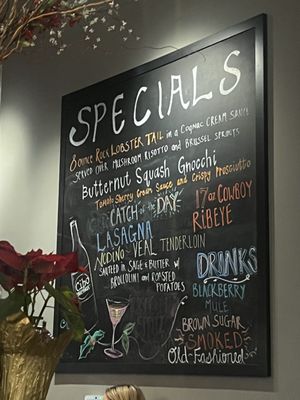 SPECIALS
8 OUNCE ROCK LOBSTER TAIL IN A COGNAC CREAM SAUCE
SERVED OVER MUSHROOM RISOTTO AND BRUSSEL SPROUTS
BUTTERNUT SQUASH GNOCCHI
TOMATO SHERRY CREAM SAUCE AND CRISPY PROSCIUTTO
CATCH of the DAY
LASAGNA
17oz COWBOY
RIBEYE
VEAL TENDERLOIN
SAUTEED IN SAGE & BUTTER W/
BROCCOLINI AND ROASTED
POTATOES
DRINKS
BLACKBERRY
MULE
BROWN SUGAR
SMOKED
Old-Fashioned